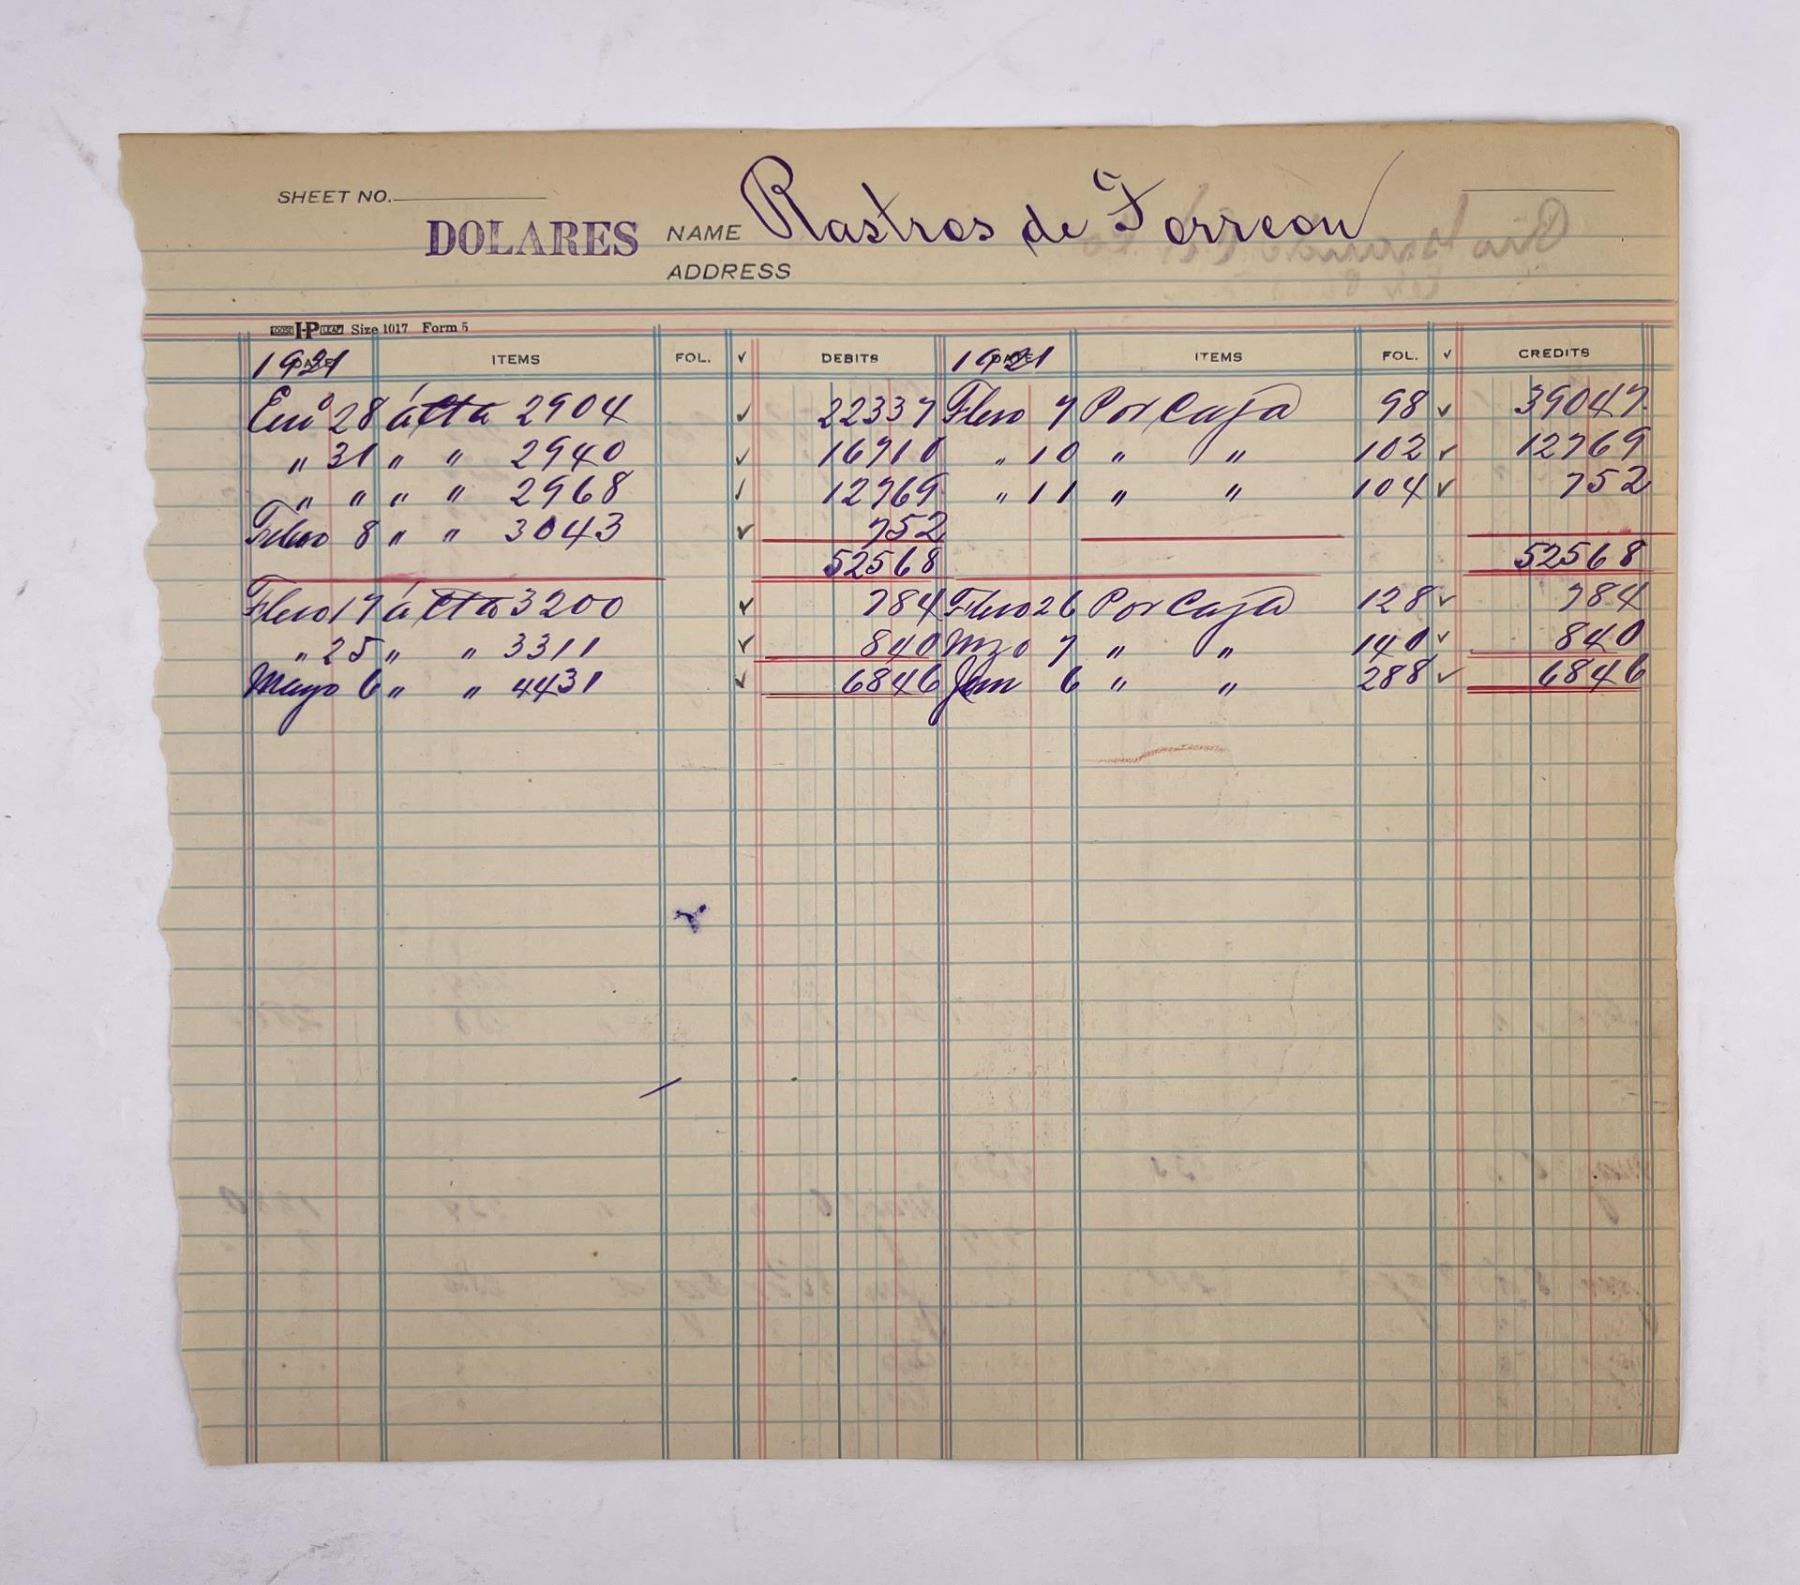 SHEET NO.
DOLARES NAME Rastros de Torreon
ADDRESS
LOOSE I-P LEAF Size 1017 Form 5
DATE ITEMS FOL. √ DEBITS DATE ITEMS FOL. √ CREDITS
1921 1921
Eno 28 á cta 2904 ✓ 22337 Fbro 7 Por Caja 98 ✓ 39047
" 31 " " 2940 ✓ 16710 " 10 " " 102 ✓ 12769
" " " " 2968 ✓ 12769 " 11 " " 104 ✓ 752
Febro 8 " " 3043 ✓ 752
52568 52568
Fbro 17 á cta 3200 ✓ 784 Fbro 26 Por Caja 128 ✓ 784
" 25 " " 3311 ✓ 840 Mzo 7 " " 140 ✓ 840
Mayo 6 " " 4431 ✓ 6846 Jun 6 " " 288 ✓ 6846